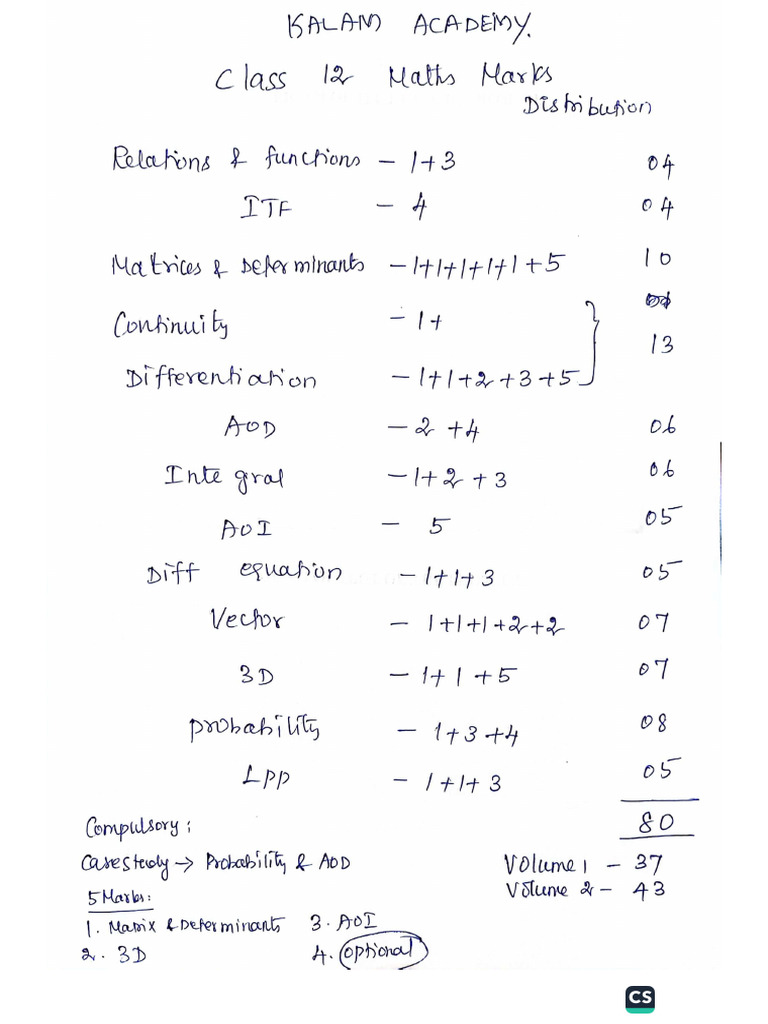 KALAM ACADEMY.
Class 12 Maths Marks
Distribution
Relations & functions - 1+3 04
ITF - 4 04
Matrices & Determinants - 1+1+1+1+1+5 10
Continuity - 1+
13
Differentiation - 1+1+2+3+5
AOD - 2+4 06
Integral - 1+2+3 06
AOI - 5 05
Diff equation - 1+1+3 05
Vector - 1+1+1+2+2 07
3D - 1+1+5 07
Probability - 1+3+4 08
LPP - 1+1+3 05
80
Compulsory:
Case study → Probability & AOD Volume 1 - 37
5 Marks: Volume 2 - 43
1. Matrix & Determinants 3. AOI
2. 3D 4. optional
CS